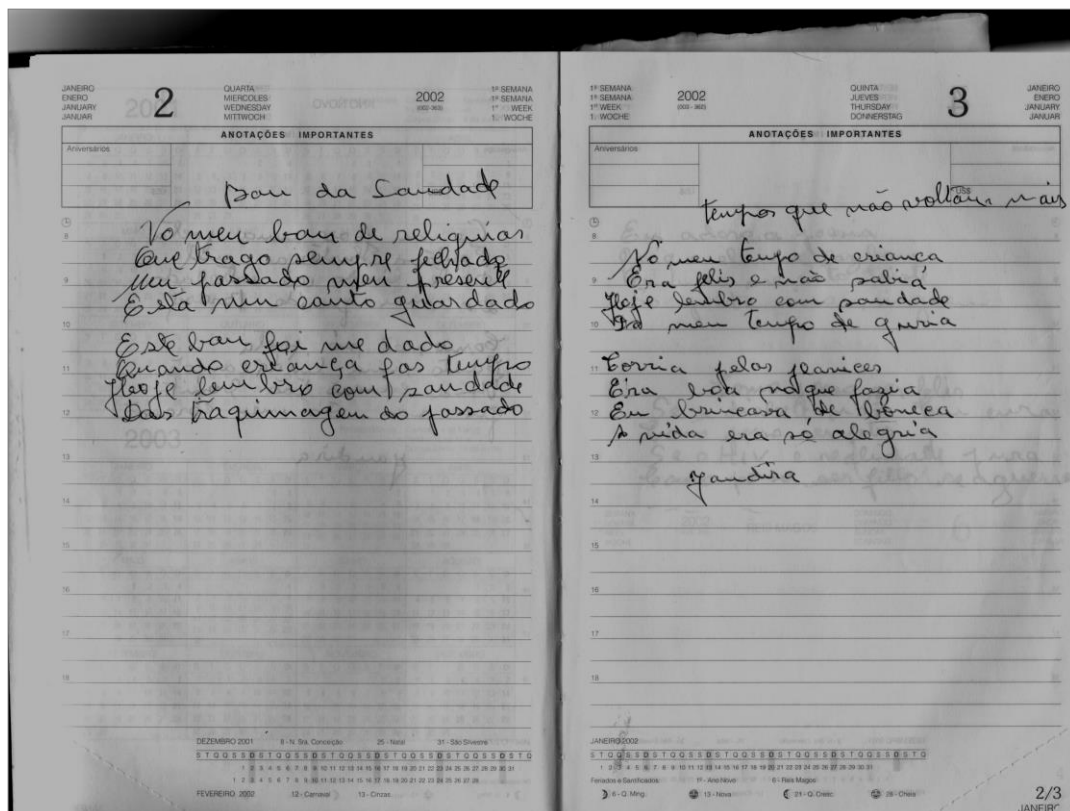 JANEIRO
ENERO
JANUARY
JANUAR
2
QUARTA
MIERCOLES
WEDNESDAY
MITTWOCH
2002
(002-363)
1ª SEMANA
1ª SEMANA
1st WEEK
1. WOCHE
ANOTAÇÕES IMPORTANTES
Aniversários
Bau da Saudade
No meu bau de reliquias
Que trago sempre fechado
Meu passado meu presente
Esta num canto guardado
Este bau foi me dado
Quando criança fas tempo
Hoje lembro com saudade
Das do passado
8
9
10
11
12
13
14
15
16
17
18
DEZEMBRO 2001 8 - N. Sra. Conceição 25 - Natal 31 - São Silvestre
FEVEREIRO 2002 12 - Carnaval 13 - Cinzas
1ª SEMANA
1ª SEMANA
1st WEEK
1. WOCHE
2002
(003-362)
QUINTA
JUEVES
THURSDAY
DONNERSTAG
3
JANEIRO
ENERO
JANUARY
JANUAR
ANOTAÇÕES IMPORTANTES
Aniversários
US$
tempos que não voltam mais
No meu tempo de criança
Era felis e não sabiá
Hoje lembro com saudade
Do meu tempo de guria
Corria pelas
Era boa no que fazia
Eu brincava de boneca
A vida era só alegria
Jandira
8
9
10
11
12
13
14
15
16
17
18
JANEIRO 2002
Feriados e Santificados 1º - Ano Novo 6 - Reis Magos
6 - Q. Ming. 13 - Nova 21 - Q. Cresc. 28 - Cheia
2/3
JANEIRO